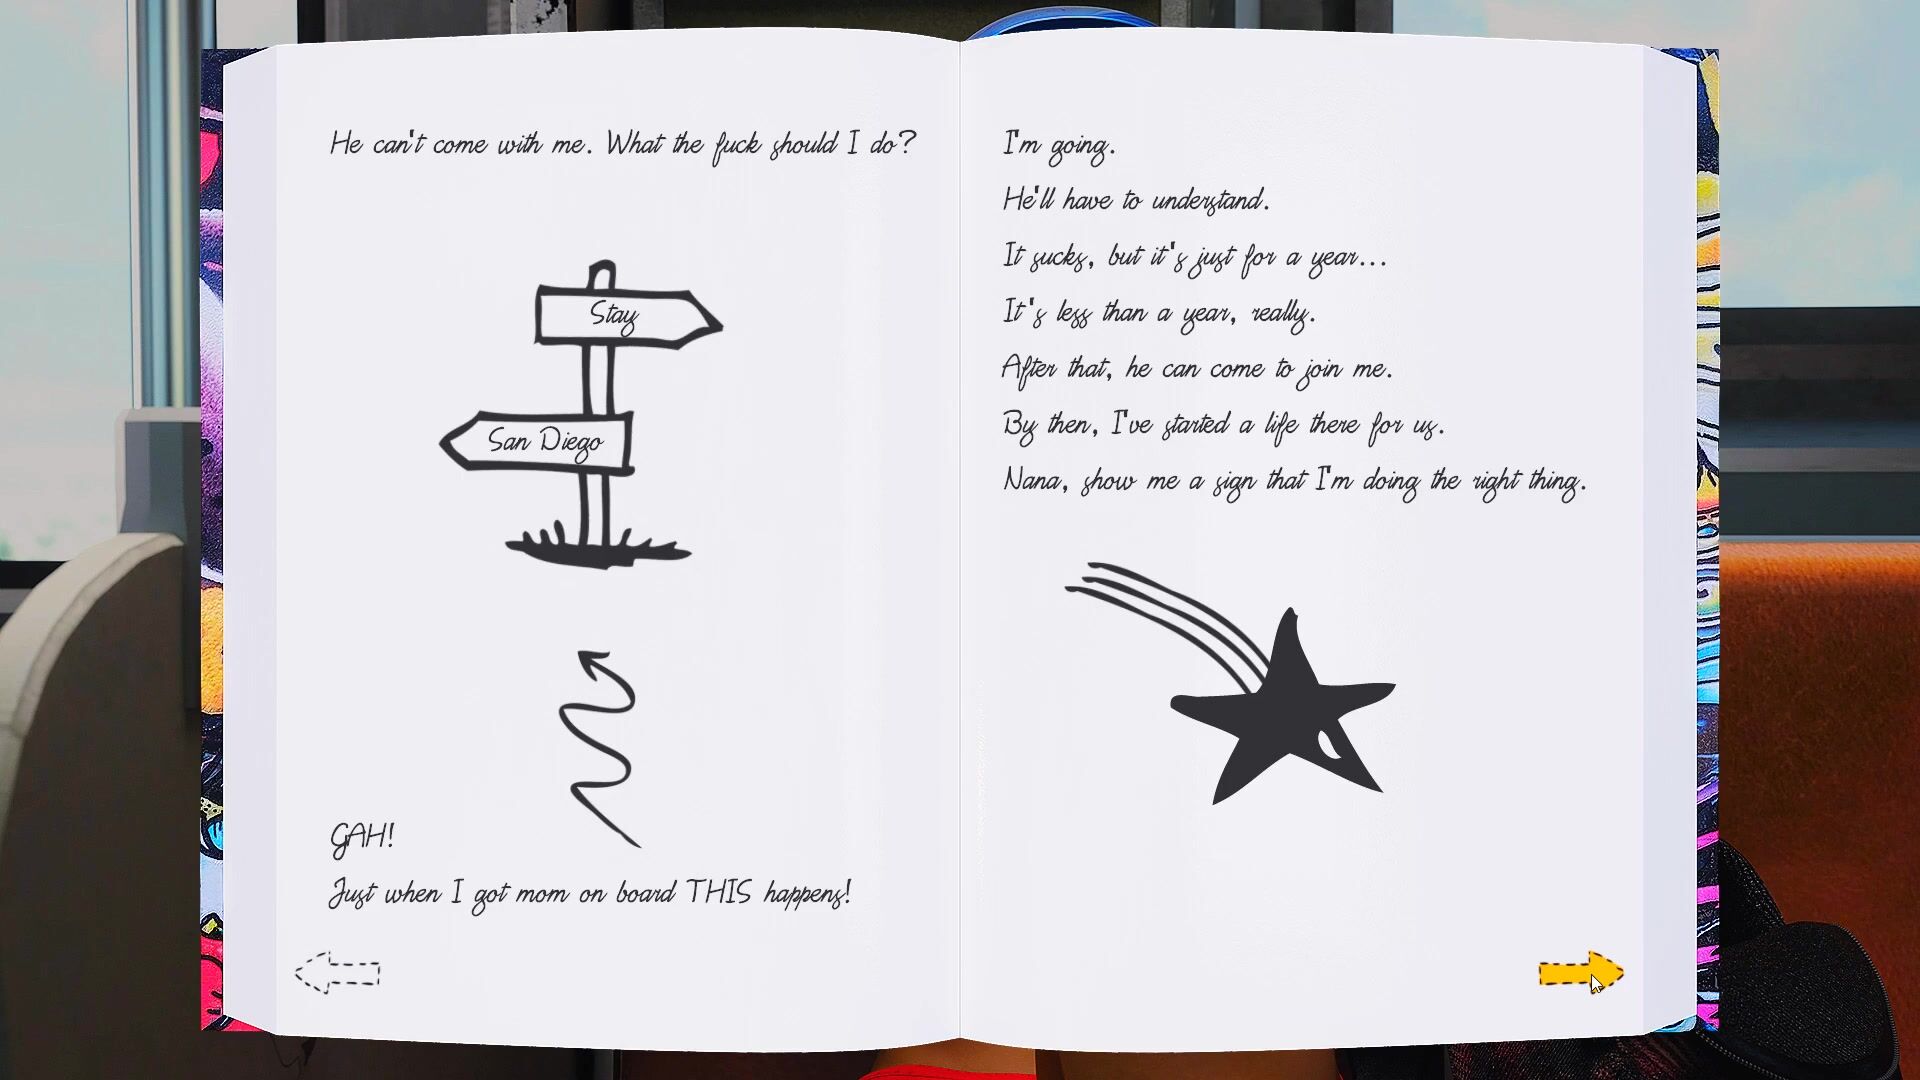 He can't come with me. What the fuck should I do?
Stay
San Diego
GAH!
Just when I got mom on board THIS happens!
I'm going.
He'll have to understand.
It sucks, but it's just for a year...
It's less than a year, really.
After that, he can come to join me.
By then, I've started a life there for us.
Nana, show me a sign that I'm doing the right thing.